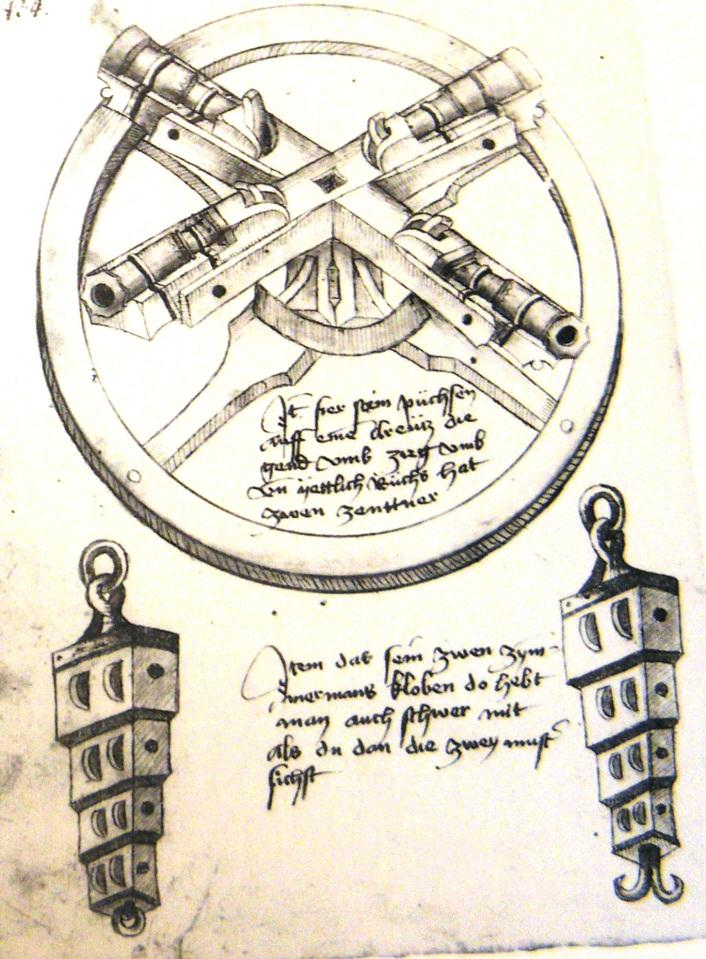 134.
It hier sein püchsen
auff eine kreütz die
gend vmb zirg vmb
vn yettlich püchs hat
zwen zenttner
Item das sein zwen zym-
mermans kloben do hebt
man auch schwer mit
als du dan die zwey must
sichst